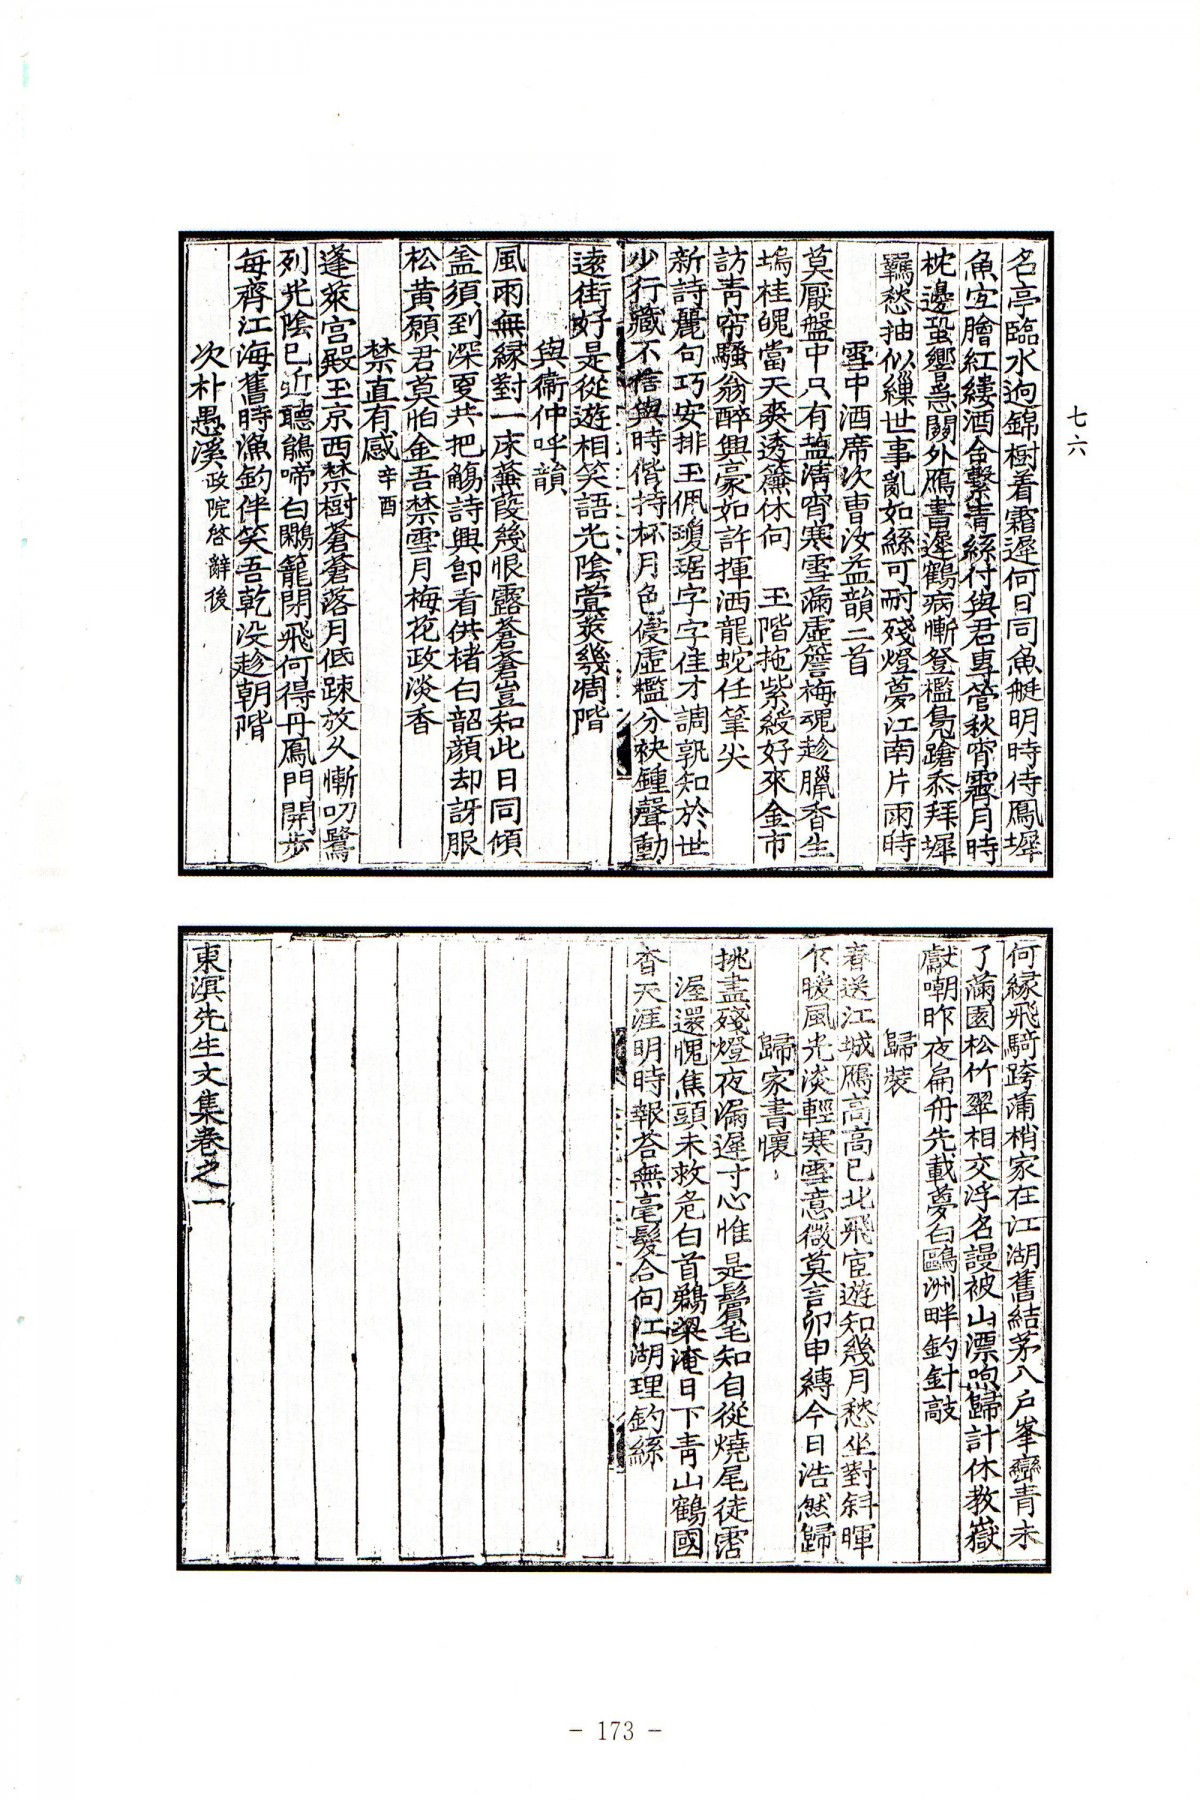 七六
名亭臨水逈錦樹着霜遲何日同魚艇明時侍鳳墀
魚宜膾紅縷酒合繫靑絲付與君專管秋宵霽月時
枕邊蛩響急關外鴈書遲鶴病慚登檻鳧蹌忝拜墀
羈愁抽似繅世事亂如絲可耐殘燈夢江南片雨時
雪中酒席次曹汝益韻二首
莫厭盤中只有塩淸宵寒雪滿虛簷梅魂趁臘香生
塢桂魄當天爽透簾休向 玉階拖紫綬好來金市
訪靑帘騷翁醉興豪如許揮洒龍蛇任筆尖
新詩麗句巧安排玉佩瓊琚字字佳才調孰知於世
少行藏不 與時偕持杯月色侵虛檻分袂鍾聲動
遠街好是從遊相笑語光陰蓂莢幾凋階
與衛仲呼韻
風雨無緣對一床蒹葭幾恨露蒼蒼豈知此日同傾
盍須到深更共把觴詩興卽看供楮白韶顔却訝服
松黃願君莫怕金吾禁雪月梅花政淡香
禁直有感辛酉
蓬萊宮殿玉京西禁樹蒼蒼落月低踈放久慚叨鷺
列光陰已近聽鵑啼白鷴籠閉飛何得丹鳳門開步
每齊江海舊時漁釣伴笑吾乾没趁朝階
次朴愚溪政院啓辭後
何緣飛騎跨蒲梢家在江湖舊結茅八戶峯巒靑未
了滿園松竹翠相交浮名謾被山漂 歸計休教嶽
獻嘲昨夜扁舟先載夢白鷗洲畔釣針敲
歸裝
春送江城鴈高高已北飛宦遊知幾月愁坐對斜暉
乍暖風光淡輕寒雪意微莫言卯申縛今日浩然歸
歸家書懷
挑盡殘燈夜漏遲寸心惟是鬢毛知自從燒尾徒霑
渥還愧焦頭未救危白首鵜梁淹日下靑山鶴國
杳天涯明時報答無毫髮合向江湖理釣絲
東溟先生文集卷之一
- 173 -